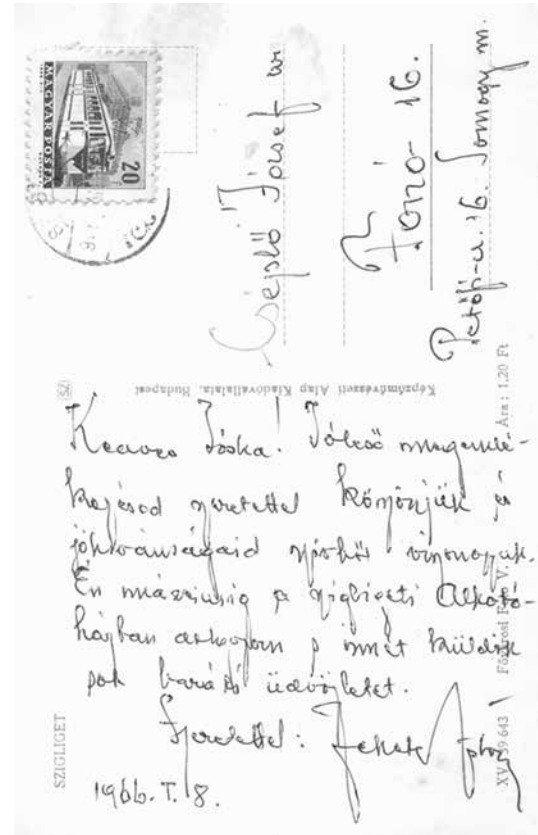 MAGYAR POSTA
20
Cséplő József úr
Fonó 16.
Petőfi-u. 16. Somogy m.
Képzőművészeti Alap Kiadóvállalata, Budapest
Ára: 1,20 Ft
Kedves Jóska! Jóleső megemlé-
kezésed szeretettel köszönjük és
jókívánságaid szívből viszonozzuk.
Én márciusig a szigligeti Alkotó-
házban dolgozom s innét küldök
sok baráti üdvözletet.
Szeretettel: Fekete István
1966. I. 8.
SZIGLIGET